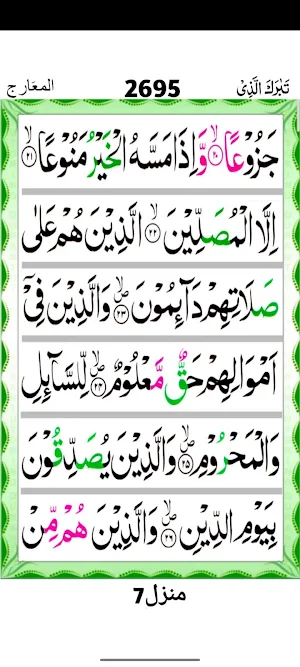 تَبٰرَكَ الَّذِىْ 2695 المعَارج
جَزُوْعًاۙ‏﴿۲۰﴾ وَّاِذَا مَسَّهُ الْخَيْرُ مَنُوْعًاۙ‏﴿۲۱﴾
اِلَّا الْمُصَلِّيْنَۙ‏﴿۲۲﴾ الَّذِيْنَ هُمْ عَلٰى
صَلَاتِهِمْ دَآٮِٕمُوْنَ ۙ ص‏﴿۲۳﴾ وَالَّذِيْنَ فِىْۤ
اَمْوَالِهِمْ حَقٌّ مَّعْلُوْمٌ ۙ ص‏﴿۲۴﴾ لِّلسَّآٮِٕلِ
وَالْمَحْرُوْمِ ۙ ص‏﴿۲۵﴾ وَالَّذِيْنَ يُصَدِّقُوْنَ
بِيَوْمِ الدِّيْنِ ۙ ص‏﴿۲۶﴾ وَالَّذِيْنَ هُمْ مِّنْ
منزل7